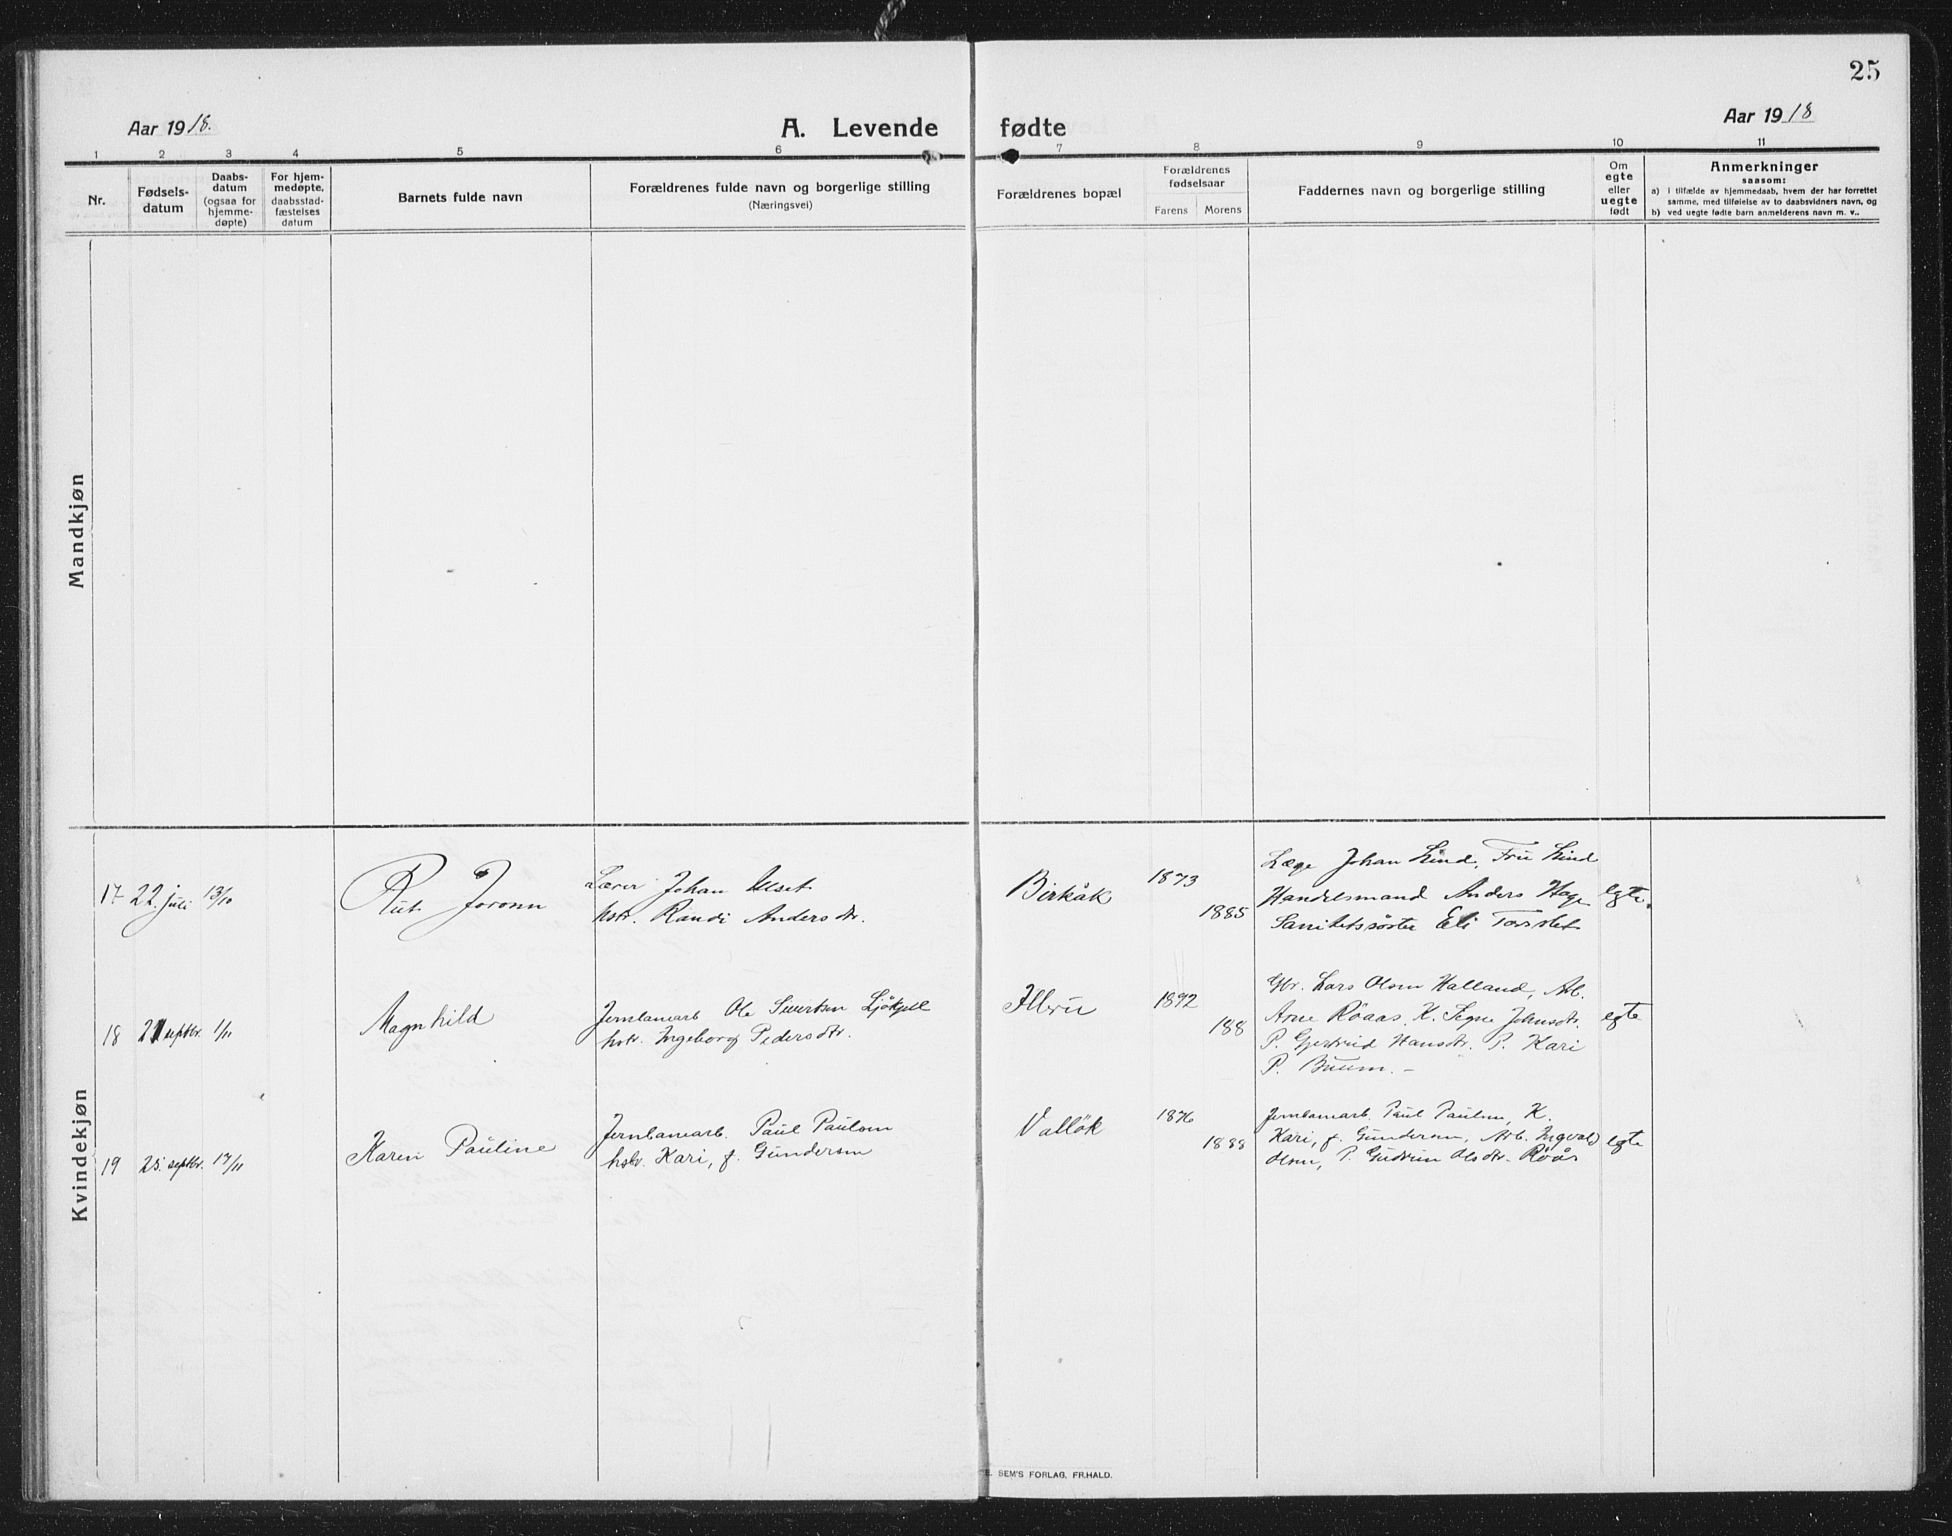 25
Aar 1918.
A. Levende fødte
Aar 1918
1 2 3 4 5 6 7 8 9 10 11
Nr.
Fødsels-
datum
Daabs-
datum
(ogsaa for
hjemme-
døpte)
For hjem-
medøpte,
daabsstad-
fæstelses
datum
Barnets fulde navn
Forældrenes fulde navn og borgerlige stilling
(Næringsvei)
Forældrenes bopæl
Forældrenes
fødselsaar
Farens Morens
Faddernes navn og borgerlige stilling
Om
egte
eller
uegte
født
Anmerkninger
saasom:
a) i tilfælde av hjemmedaab, hvem der har forrettet
samme, med tilføielse av to daabsvidners navn, og
b) ved uegte fødte barn anmelderens navn m. v..
Mandkjøn
Kvindekjøn
17 22. juli 13/10
Rut Joronn
Lærer Johan Ulset
hstr. Randi Andersdtr.
Birkåk
1873
1885
Læge Johan Lind, Fru Lind
Handelsmand Anders Hage
Sanitetssøster Eli Torstet
egte.
18 21 septbr. 1/11
Magnhild
Jernbanearb Ole Sivertsen Ljøkjell
hstr. Ingeborg Pedersdtr.
Ilbru
1892
188
Gbr. Lars Olsen Halland, Arb.
Arne Röaas, K. Signe Johnsdtr.
P. Gjertrud Hansdtr. P. Kari
P. Buum. –
egte
19 25. septbr. 17/11
Karen Pauline
Jernbanearb. Paul Paulsen
hstr. Kari, f. Gundersen
Vallök
1876
1888
Jernbanearb. Paul Paulsen, K.
Kari, f. Gundersen, Arb. Ingvald
Olsen, P. Gudrun Olsdtr. Röås
egte
E. SEM'S FORLAG, FR.HALD.